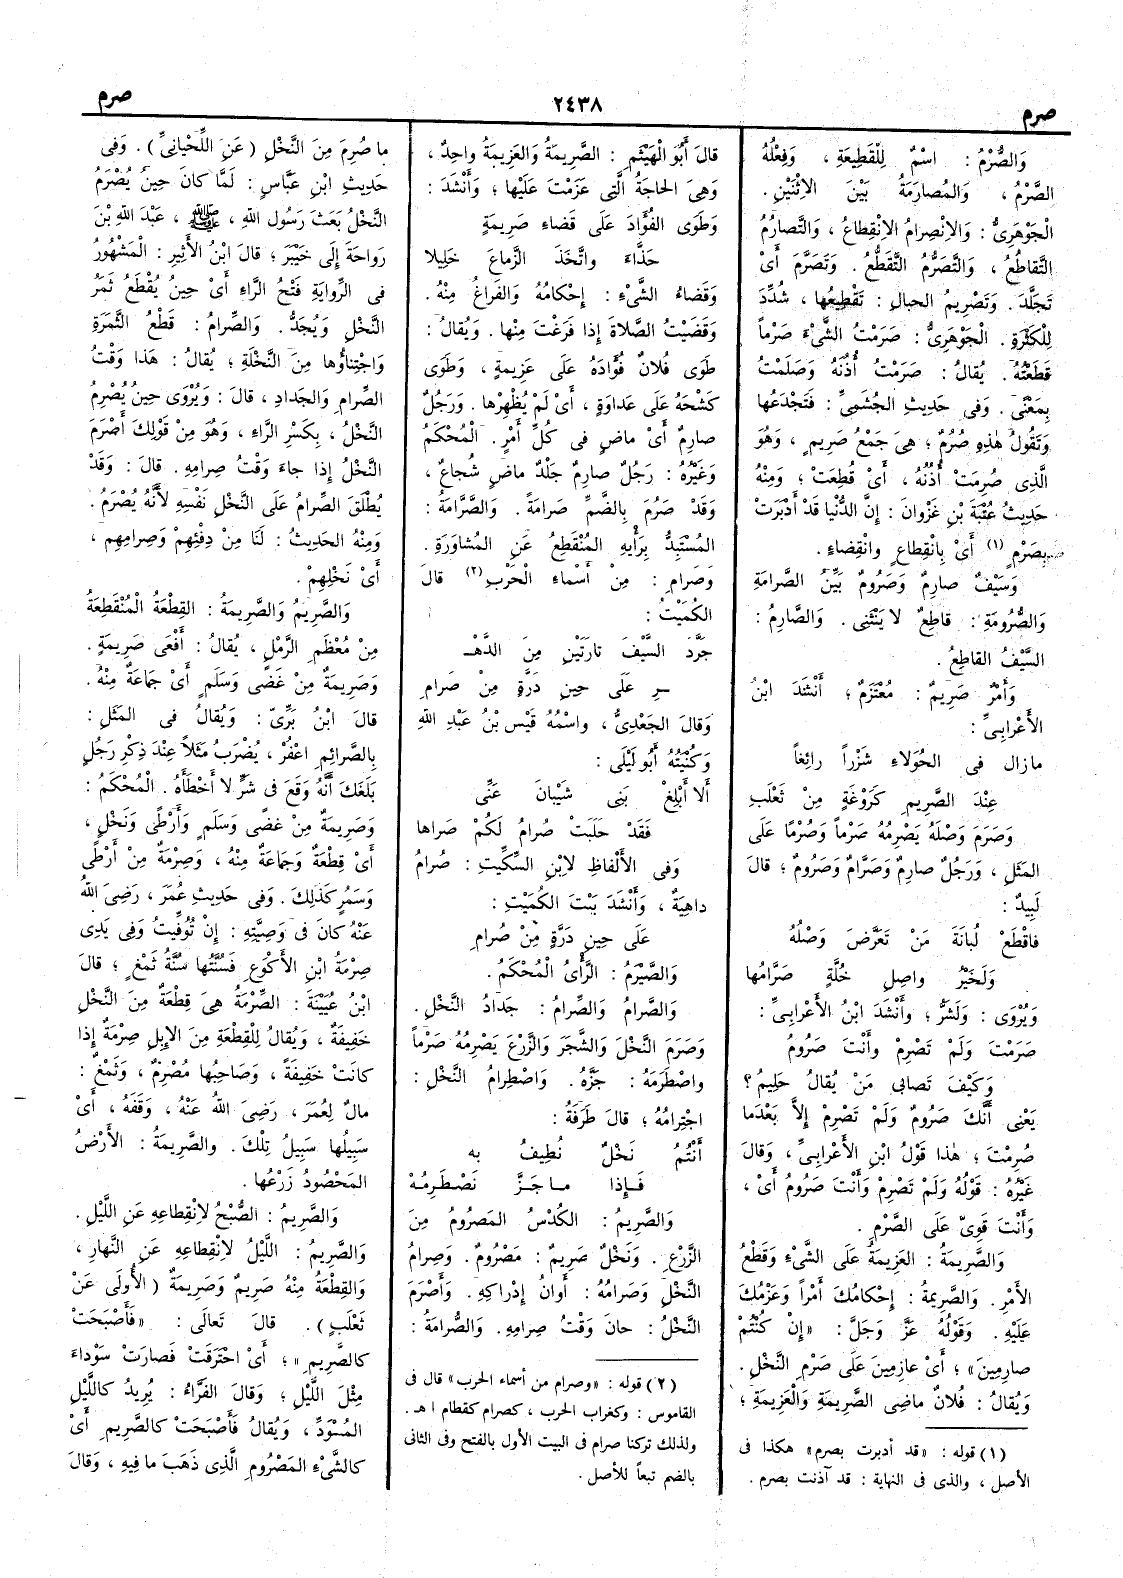 صرم
٢٤٣٨
صرم
وَالصُّرْمُ : اسْمٌ لِلْقَطِيعَةِ ، وَفِعْلُهُ
الصَّرْمُ ، وَالْمُصارَمَةُ بَيْنَ الِاثْنَيْنِ .
الْجَوْهَرِىُّ : وَالِانْصِرامُ الِانْقِطاعُ ، وَالتَّصارُمُ
التَّقاطُعُ ، وَالتَّصَرُّمُ التَّقَطُّعُ . وَتَصَرَّمَ أَىْ
تَجَلَّدَ . وَتَصْرِيمُ الحِبالِ : تَقْطِيعُها ، شُدِّدَ
لِلْكَثْرَةِ . الْجَوْهَرِىُّ : صَرَمْتُ الشَّىْءَ صَرْماً
قَطَعْتُهُ . يُقالُ : صَرَمْتُ أُذُنَهُ وَصَلَمْتُ
بِمَعْنًى . وَفى حَدِيثِ الْجُشَمِىِّ : فَتَجْدَعُها
وَتَقُولُ هٰذِهِ صُرُمٌ ؛ هِىَ جَمْعُ صَرِيمٍ ، وَهُوَ
الَّذِى صُرِمَتْ أُذُنُهُ ، أَىْ قُطِعَتْ ؛ وَمِنْهُ
حَدِيثُ عُتْبَةَ بْنِ غَزْوانَ : إِنَّ الدُّنْيا قَدْ أَدْبَرَتْ
بِصَرْمٍ (١) أَىْ بِانْقِطاعٍ وانْقِضاءٍ .
وَسَيْفٌ صارِمٌ وَصَرُومٌ بَيِّنُ الصَّرامَةِ
وَالصُّرُومَةِ : قاطِعٌ لا يَنْثَنِى . وَالصَّارِمُ :
السَّيْفُ القاطِعُ .
وَأَمْرٌ صَرِيمٌ : مُعْتَزَمٌ ؛ أَنْشَدَ ابْنُ
الأَعْرابِىِّ :
مازالَ فى الحُوَلاءِ شَزْراً رائِغاً
عِنْدَ الصَّرِيمِ كَرَوْغَةٍ مِنْ ثَعْلَبِ
وَصَرَمَ وَصْلَهُ يَصْرِمُهُ صَرْماً وَصُرْمًا عَلَى
المَثَلِ ، وَرَجُلٌ صارِمٌ وَصَرَّامٌ وَصَرُومٌ ؛ قالَ
لَبِيدٌ :
فاقْطَعْ لُبانَةَ مَنْ تَعَرَّضَ وَصْلُهُ
وَلَخَيْرُ واصِلِ خُلَّةٍ صَرَّامُها
وَيُرْوَى : وَلَشَرُّ ؛ وَأَنْشَدَ ابْنُ الأَعْرابِىِّ :
صَرَمْتَ وَلَمْ تَصْرِمْ وَأَنْتَ صَرُومُ
وَكَيْفَ تَصابِى مَنْ يُقالُ حَلِيمُ؟
يَعْنِى أَنَّكَ صَرُومٌ وَلَمْ تَصْرِمْ إِلاَّ بَعْدَما
صُرِمْتَ ؛ هٰذا قَوْلُ ابْنِ الأَعْرابِىِّ ، وَقالَ
غَيْرُهُ : قَوْلُهُ وَلَمْ تَصْرِمْ وَأَنْتَ صَرُومُ أَىْ ،
وَأَنْتَ قَوِىٌّ عَلَى الصَّرْمِ .
وَالصَّرِيمَةُ : العَزِيمَةُ عَلَى الشَّىْءِ وَقَطْعُ
الأَمْرِ . وَالصَّرِيمَةُ : إِحْكامُكَ أَمْراً وَعَزْمُكَ
عَلَيْهِ . وَقَوْلُهُ عَزَّ وَجَلَّ : «إِنْ كُنْتُمْ
صارِمِينَ» ؛ أَىْ عازِمِينَ عَلَى صَرْمِ النَّخْلِ .
وَيُقالُ : فُلانٌ ماضِى الصَّرِيمَةِ وَالْعَزِيمَةِ ؛
(١) قوله : «قد أدبرت بصرم» هكذا فى
الأصل ، والذى فى النهاية : قد آذنت بصرم .
قالَ أَبُو الْهَيْثَمِ : الصَّرِيمَةُ وَالعَزِيمَةُ واحِدٌ ،
وَهِىَ الحاجَةُ الَّتِى عَزَمْتَ عَلَيْها ؛ وَأَنْشَدَ :
وَطَوَى الفُؤَادَ عَلَى قَضاءِ صَرِيمَةٍ
حَذَّاءَ واتَّخَذَ الزَّماعَ خَلِيلا
وَقَضاءُ الشَّىْءِ : إِحْكامُهُ وَالفَراغُ مِنْهُ .
وَقَضَيْتُ الصَّلاةَ إِذا فَرَغْتَ مِنْها . وَيُقالُ :
طَوَى فُلانٌ فُؤَادَهُ عَلَى عَزِيمَةٍ ، وَطَوَى
كَشْحَهُ عَلَى عَداوَةٍ ، أَىْ لَمْ يُظْهِرْها . وَرَجُلٌ
صارِمٌ أَىْ ماضٍ فى كُلِّ أَمْرٍ . الْمُحْكَمُ
وَغَيْرُهُ : رَجُلٌ صارِمٌ جَلْدٌ ماضٍ شُجاعٌ ،
وَقَدْ صَرُمَ بِالضَّمِّ صَرامَةً . وَالصَّرَّامَةُ :
المُسْتَبِدُّ بِرَأْيِهِ المُنْقَطِعُ عَنِ المُشاوَرَةِ .
وَصَرامِ : مِنْ أَسْماءِ الْحَرْبِ (٢) قالَ
الكُمَيْتُ :
جَرَّدَ السَّيْفَ تارَتَيْنِ مِنَ الدَّهْـ
ـرِ عَلَى حِينِ دَرَّةٍ مِنْ صَرامِ
وَقالَ الجَعْدِىُّ ، واسْمُهُ قَيْسُ بْنُ عَبْدِ اللّهِ
وَكُنْيَتُهُ أَبُو لَيْلَى :
أَلا أَبْلِغْ بَنِى شَيْبانَ عَنِّى
فَقَدْ حَلَبَتْ صُرامُ لَكُمْ صَراها
وَفى الأَلْفاظِ لابْنِ السِّكِّيتِ : صُرامُ
داهِيَةٌ ، وَأَنْشَدَ بَيْتَ الكُمَيْتِ :
عَلَى حِينِ دَرَّةٍ مِنْ صُرامِ
وَالصَّيْرَمُ : الرَّأْىُ الْمُحْكَمُ .
وَالصَّرامُ وَالصِّرامُ : جَدادُ النَّخْلِ .
وَصَرَمَ النَّخْلَ وَالشَّجَرَ وَالزَّرْعَ يَصْرِمُهُ صَرْماً
واصْطَرَمَهُ : جَزَّهُ . وَاصْطِرامُ النَّخْلِ :
اجْتِرامُهُ ؛ قالَ طَرَفَةُ :
أَنْتُمُ نَخْلٌ نُطِيفُ به
فَإِذا ما جَزَّ نَصْطَرِمُهْ
وَالصَّرِيمُ : الكُدْسُ المَصْرُومُ مِنَ
الزَّرْعِ . وَنَخْلٌ صَرِيمٌ : مَصْرُومٌ . وَصِرامُ
النَّخْلِ وَصَرامُهُ : أَوانُ إِدْراكِهِ . وَأَصْرَمَ
النَّخْلُ : حانَ وَقْتُ صِرامِهِ . وَالصُّرامَةُ :
(٢) قوله : «وصرام من أسماء الحرب» قال فى
القاموس : وكغراب الحرب ، كصرام كقطام ا هـ .
ولذلك تركنا صرام فى البيت الأول بالفتح وفى الثانى
بالضم تبعاً للأصل .
ما صُرِمَ مِنَ النَّخْلِ (عَنِ اللِّحْيانِىِّ) . وَفى
حَدِيثِ ابْنِ عَبَّاسٍ : لَمَّا كانَ حِينُ يُصْرَمُ
النَّخْلُ بَعَثَ رَسُولُ اللهِ ، ﷺ ، عَبْدَ اللهِ بْنَ
رَواحَةَ إِلَى خَيْبَرَ ؛ قالَ ابْنُ الأَثِيرِ : الْمَشْهُورُ
فى الرِّوايَةِ فَتْحُ الرَّاءِ أَىْ حِينُ يُقْطَعُ ثَمَرُ
النَّخْلِ وَيُجَدُّ . وَالصِّرامُ : قَطْعُ الثَّمَرَةِ
وَاجْتِناؤُها مِنَ النَّخْلَةِ ؛ يُقالُ : هٰذا وَقْتُ
الصِّرامِ وَالجَدادِ ، قالَ : وَيُرْوَى حِينُ يُصْرِمُ
النَّخْلُ ، بِكَسْرِ الرَّاءِ ، وَهُوَ مِنْ قَوْلِكَ أَصْرَمَ
النَّخْلُ إِذا جاءَ وَقْتُ صِرامِهِ . قالَ : وَقَدْ
يُطْلَقُ الصِّرامُ عَلَى النَّخْلِ نَفْسِهِ لأَنَّهُ يُصْرَمُ .
وَمِنْهُ الحَدِيثُ : لَنا مِنْ دِفْئِهِمْ وَصِرامِهِم ،
أَىْ نَخْلِهِمْ .
وَالصَّرِيمُ وَالصَّرِيمَةُ : القِطْعَةُ الْمُنْقَطِعَةُ
مِنْ مُعْظَمِ الرَّمْلِ ، يُقالُ : أَفْعَى صَرِيمَةٍ .
وَصَرِيمَةٌ مِنْ غَضًى وَسَلَمٍ أَىْ جَماعَةٌ مِنْهُ .
قالَ ابْنُ بَرِّىّ : وَيُقالُ فى المَثَلِ :
بِالصَّرائِمِ اعْفَرْ ، يُضْرَبُ مَثَلاً عِنْدَ ذِكْرِ رَجُلٍ
بَلَغَكَ أَنَّهُ وَقَعَ فى شَرٍّ لا أَخْطَأَهُ . الْمُحْكَمُ :
وَصَرِيمَةٌ مِنْ غَضًى وَسَلَمٍ وَأَرْطًى وَنَخْلٍ ،
أَىْ قِطْعَةٌ وَجَماعَةٌ مِنْهُ ، وَصِرْمَةٌ مِنْ أَرْطًى
وَسَمُرٍ كَذٰلِكَ . وَفى حَدِيثِ عُمَرَ ، رَضِىَ اللهُ
عَنْهُ كانَ فى وَصِيَّتِهِ : إِنْ تُوُفِّيتُ وَفِى يَدِى
صِرْمَةُ ابْنِ الأَكْوَعِ فَسُنَّتُها سُنَّةُ ثَمْغٍ ؛ قالَ
ابْنُ عُيَيْنَةَ : الصِّرْمَةُ هِىَ قِطْعَةٌ مِنَ النَّخْلِ
خَفِيفَةٌ ، وَيُقالُ لِلْقِطْعَةِ مِنَ الإِبِلِ صِرْمَةٌ إِذا
كانَتْ خَفِيفَةً ، وَصاحِبُها مُصْرِمٌ ، وَثَمْغٌ :
مالٌ لِعُمَرَ ، رَضِىَ اللهُ عَنْهُ ، وَقَفَهُ ، أَىْ
سَبِيلُها سَبِيلُ تِلْكَ . والصَّرِيمَةُ : الأَرْضُ
المَحْصُودُ زَرْعُها .
وَالصَّرِيمُ : الصُّبْحُ لانْقِطاعِهِ عَنِ اللَّيْلِ .
وَالصَّرِيمُ : اللَّيْلُ لانْقِطاعِهِ عَنِ النَّهارِ ،
وَالقِطْعَةُ مِنْهُ صَرِيمٌ وَصَرِيمَةٌ (الأُولَى عَنْ
ثَعْلَبٍ) . قالَ تَعالَى : «فَأَصْبَحَتْ
كالصَّرِيمِ» ؛ أَىْ احْتَرَقَتْ فَصارَتْ سَوْداءَ
مِثْلَ اللَّيْلِ ؛ وَقالَ الفَرَّاءُ : يُرِيدُ كاللَّيْلِ
المُسْوَدِّ ، وَيُقالُ فَأَصْبَحَتْ كالصَّرِيمِ أَىْ
كالشَّىْءِ المَصْرُومِ الَّذِى ذَهَبَ ما فِيهِ ، وَقالَ